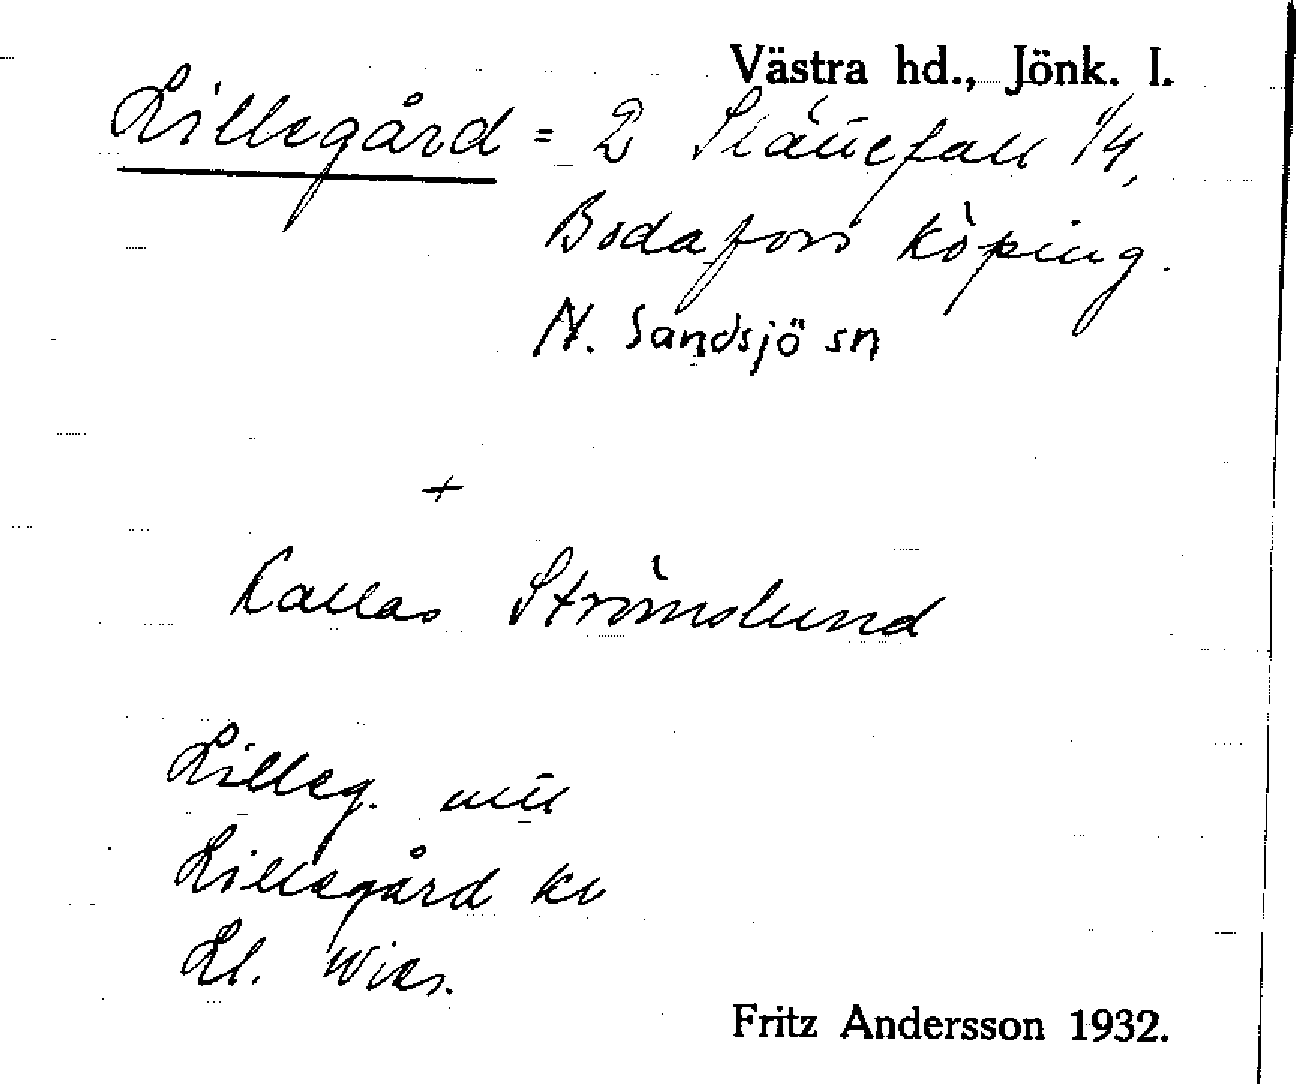 Västra hd., Jönk. l.
Lillegård = 2 Slättefall 1/4,
Bodafors köping.
N. Sandsjö sn
+
Kallas Strömslund
Lilleg. mtl
Lillegård kv
Ll.
Fritz Andersson 1932.